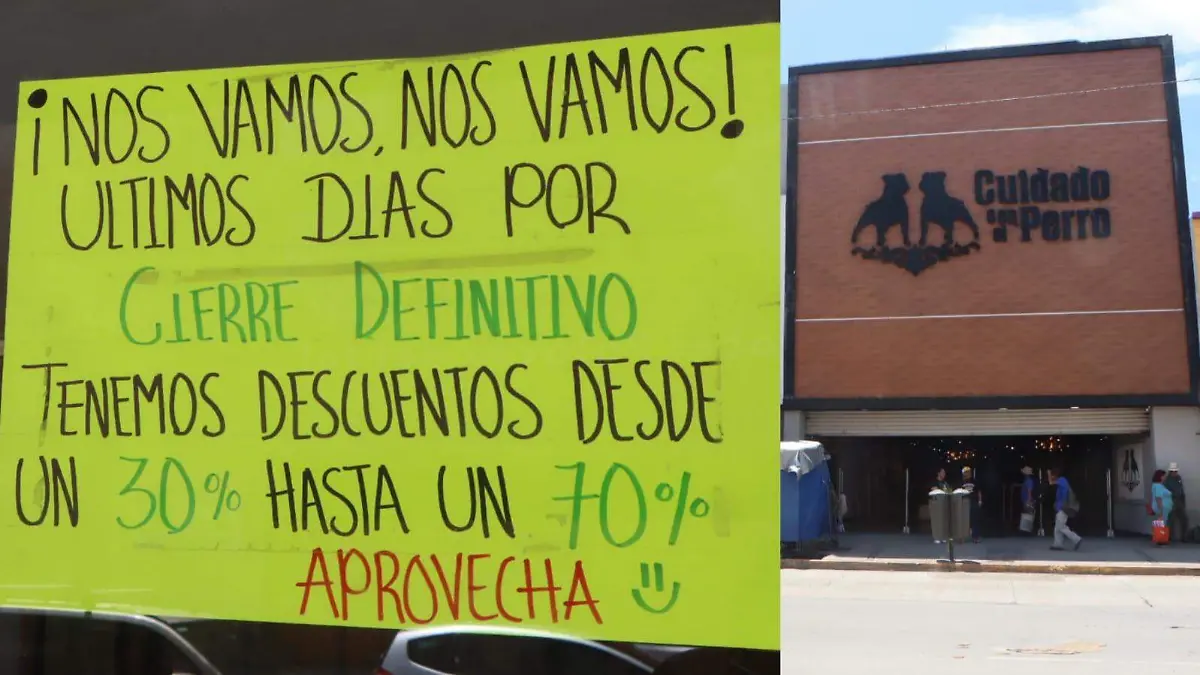 ¡NOS VAMOS, NOS VAMOS!
ULTIMOS DIAS POR
CIERRE DEFINITIVO
TENEMOS DESCUENTOS DESDE
UN 30% HASTA UN 70%
APROVECHA
Cuidado
con el Perro